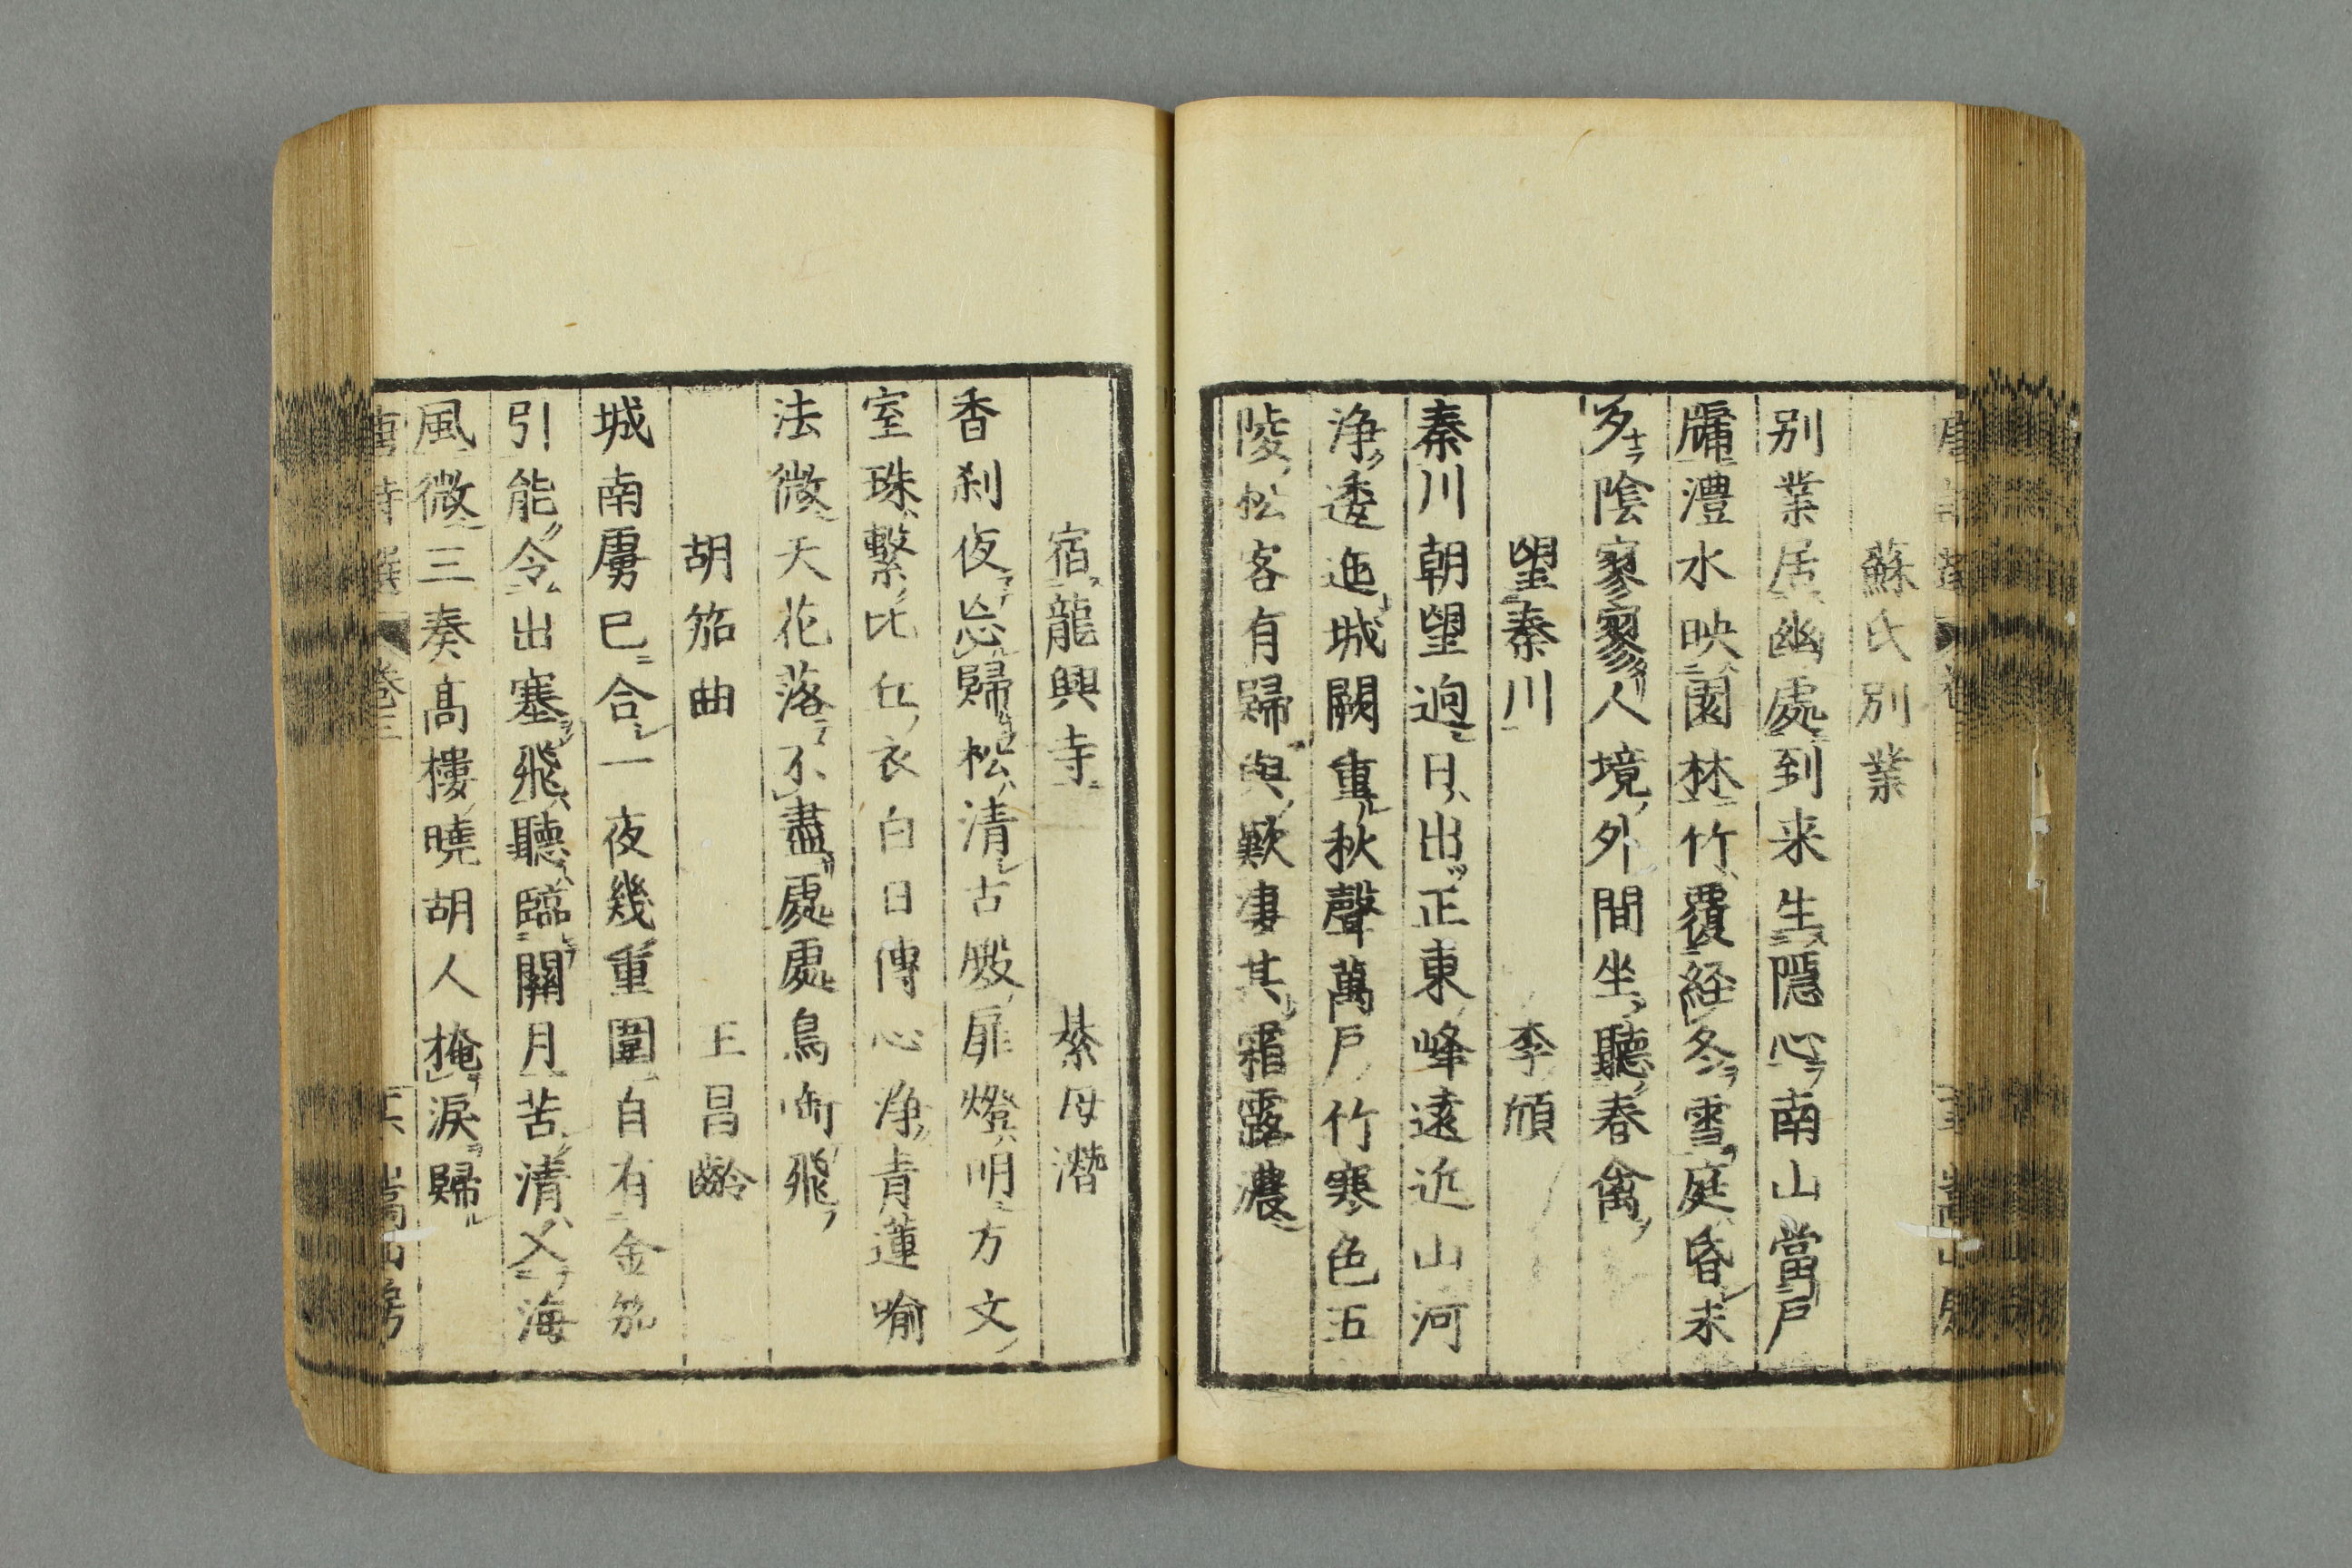 蘇氏別業
別業居幽處到来生隱心南山當戶
牖灃水映園林竹覆経冬雪庭昏未
夕陰寥寥人境外間坐聽春禽
望秦川 李頎
秦川朝望逈日出正東峰遠近山河
浄逶迤城闕重秋聲萬戶竹寒色五
陵松客有歸與歎凄其霜露濃
宿龍興寺 綦母潛
香刹夜忘歸松清古殿扉燈明方丈
室珠繫比丘衣白日傳心淨青蓮喻
法微天花落不盡處處鳥啣飛
胡笳曲 王昌齡
城南虜已合一夜幾重圍自有金笳
引能令出塞飛聽臨關月苦清入海
風微三奏髙樓曉胡人掩淚歸
唐詩選 卷三 嵩山房